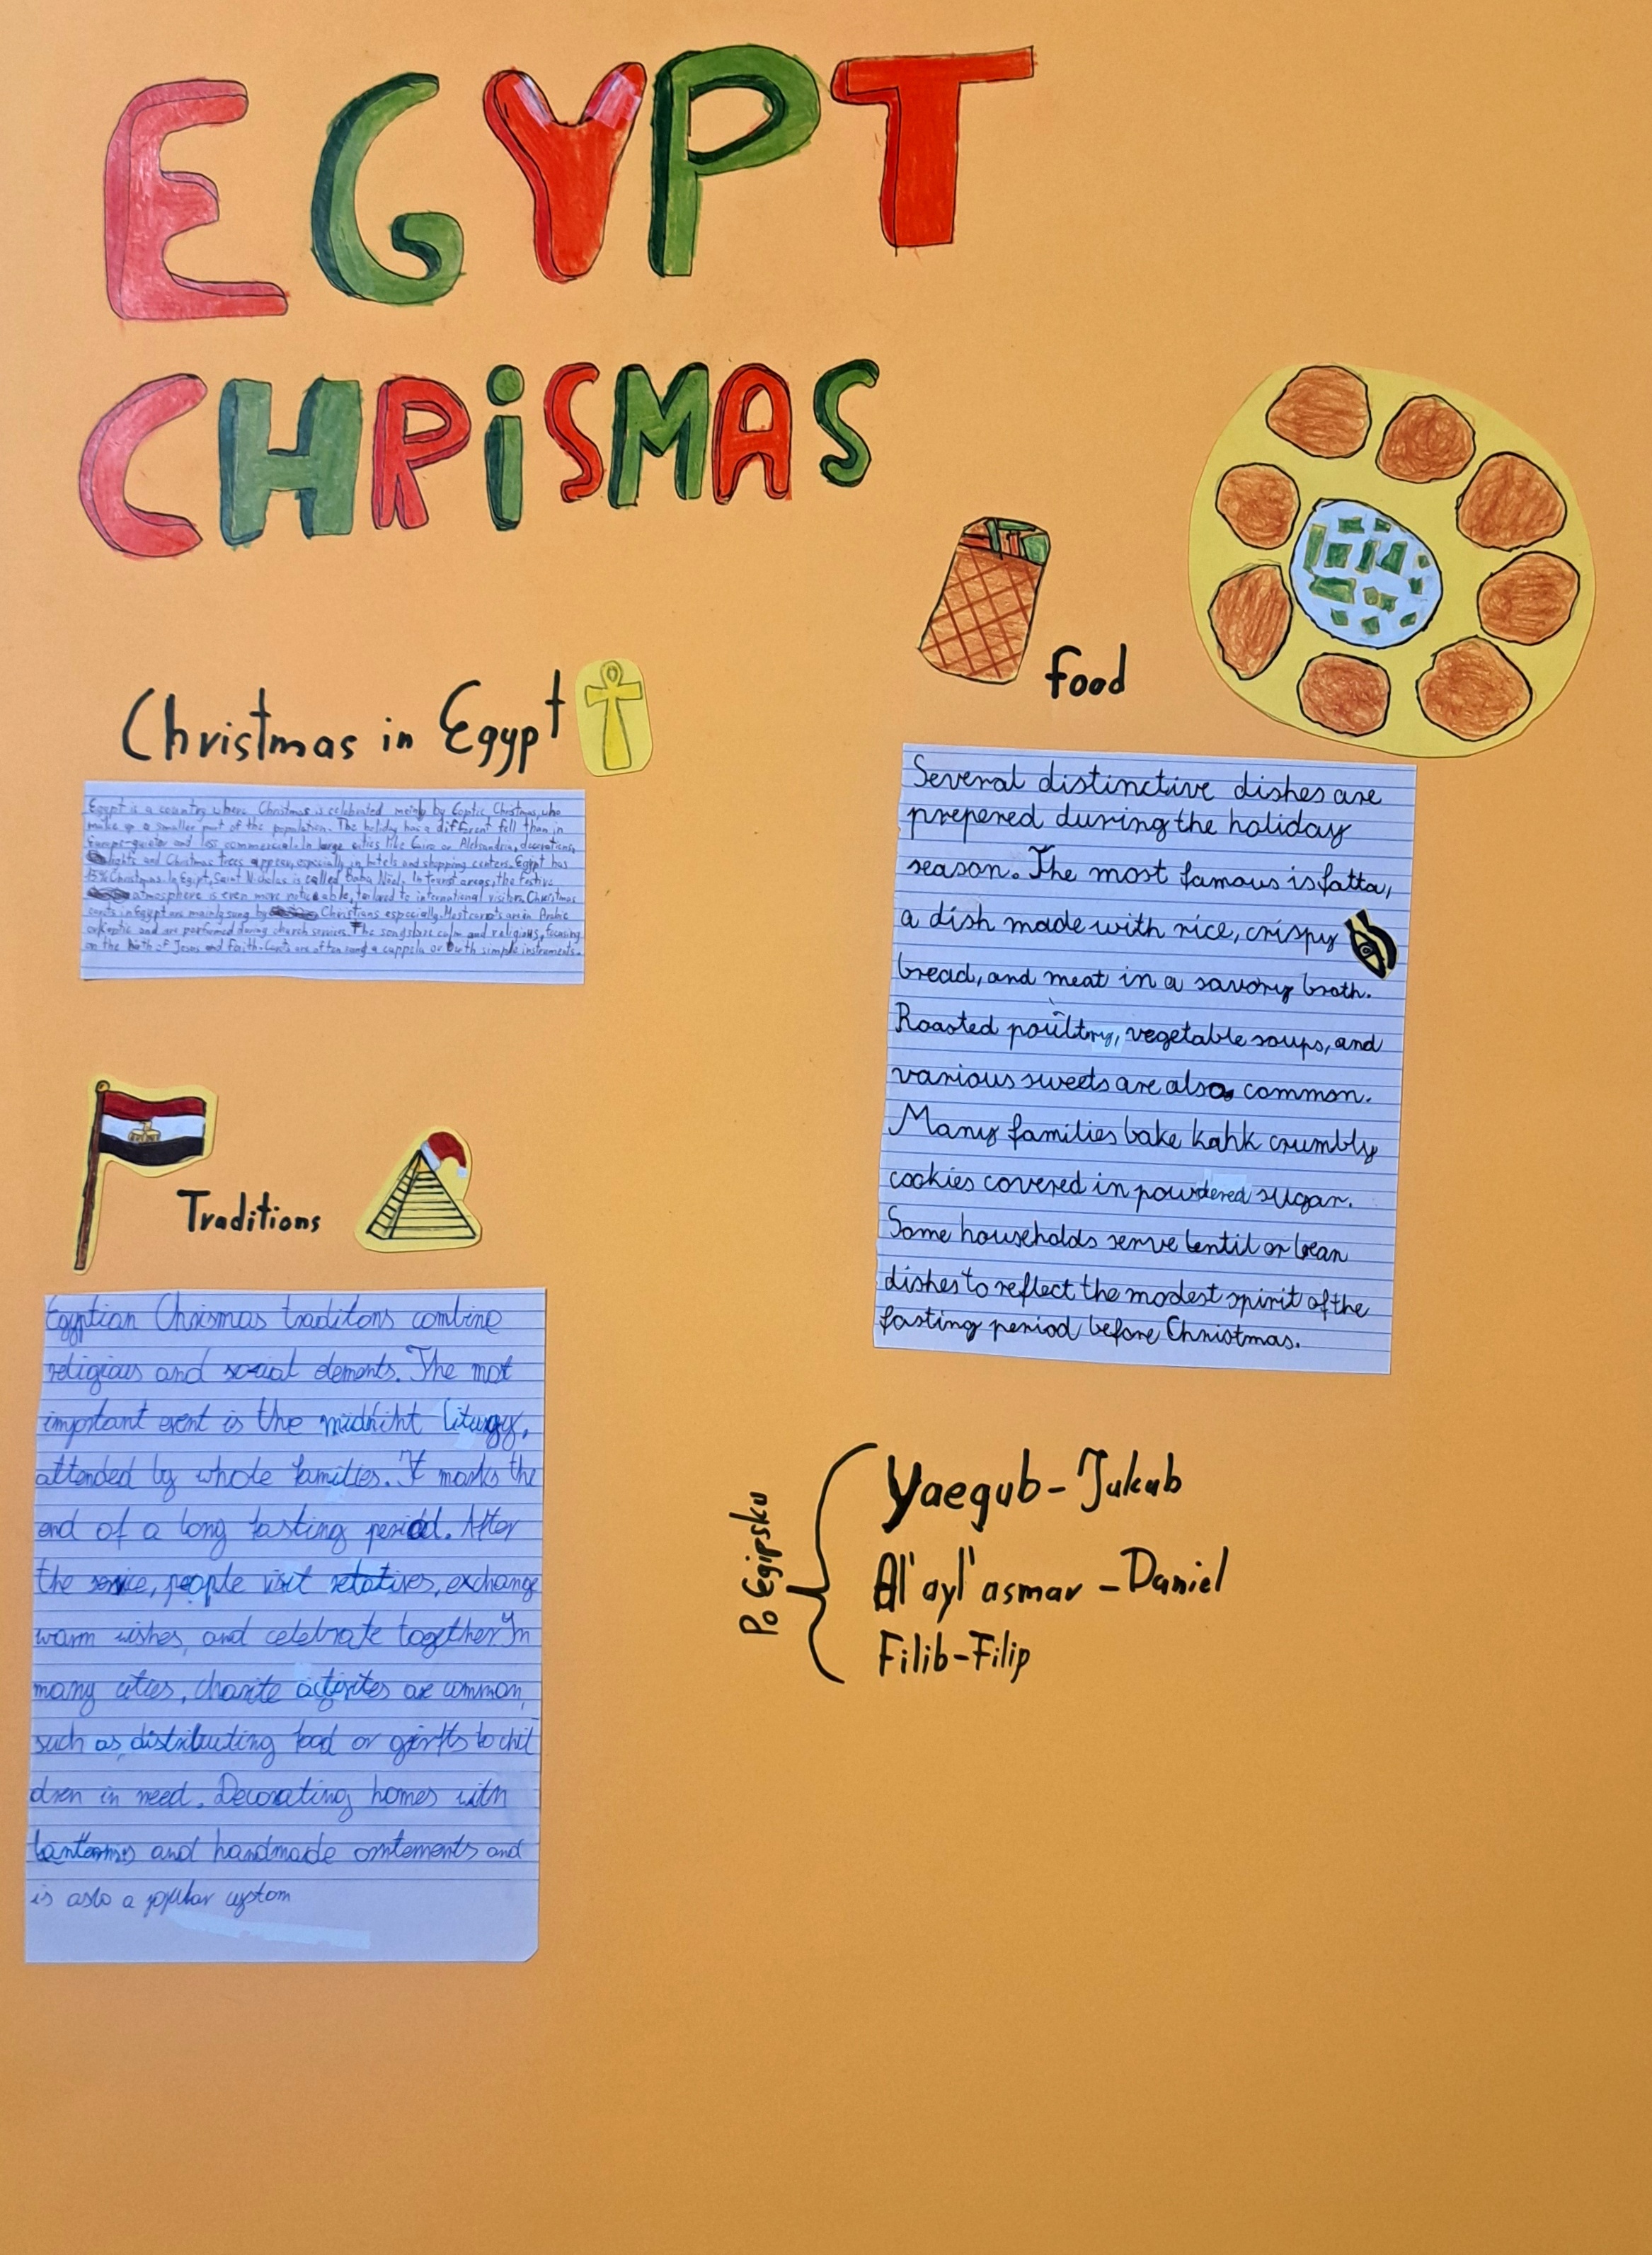 EGYPT
CHRISMAS
Christmas in Egypt
Egypt is a country where Christmas is celebrated meinly by Coptic, Christmas, who
make up a smaller part of the population. The holiday has a different fell than in
Europe-quieter and less commercial. In large cities like Cairo or Aleksandria, decorations,
lights and Christmas trees appear, especially in hotels and shopping centers. Egypt has
15% Christmas. In Egipt, Saint Nicholas is called Baba Noel. In tourist areas, the festive
atmosphere is even more noticable, tailored to international visitors. Christmas
carols in Egypt are mainly sung by Christians especially. Most carols are in Arabic
or Koptic and are performed during church services. The songs are calm and religious, focusing
on the birth of Jesus and Faith. Carols are often sung a cappela or with simple instruments.
Traditions
Egyptian Chrismas traditons combine
religious and social elements. The most
important event is the midniht liturgy,
attended by whole families. It marks the
end of a long fasting period. After
the service, people visit relatives, exchange
warm wishes, and celebrate together. In
many cities, charite activites are common,
such as distributing food or giwfts to chil
dren in need. Decorating homes with
lanterns and handmade and
is aslo a popular custom
Food
Several distinctive dishes are
prepered during the holiday
season. The most famous is fatta,
a dish made with rice, crispy
bread, and meat in a savory broth.
Roasted poultry, vegetable soups, and
various sweets are also common.
Many families bake kahk crumbly
cookies covered in powdered sugar.
Some households serve lentil or bean
dishes to reflect the modest spirit of the
fasting period before Christmas.
Po Egipsku
Yaequb-Jukub
Al'ayl'asmar-Daniel
Filib-Filip